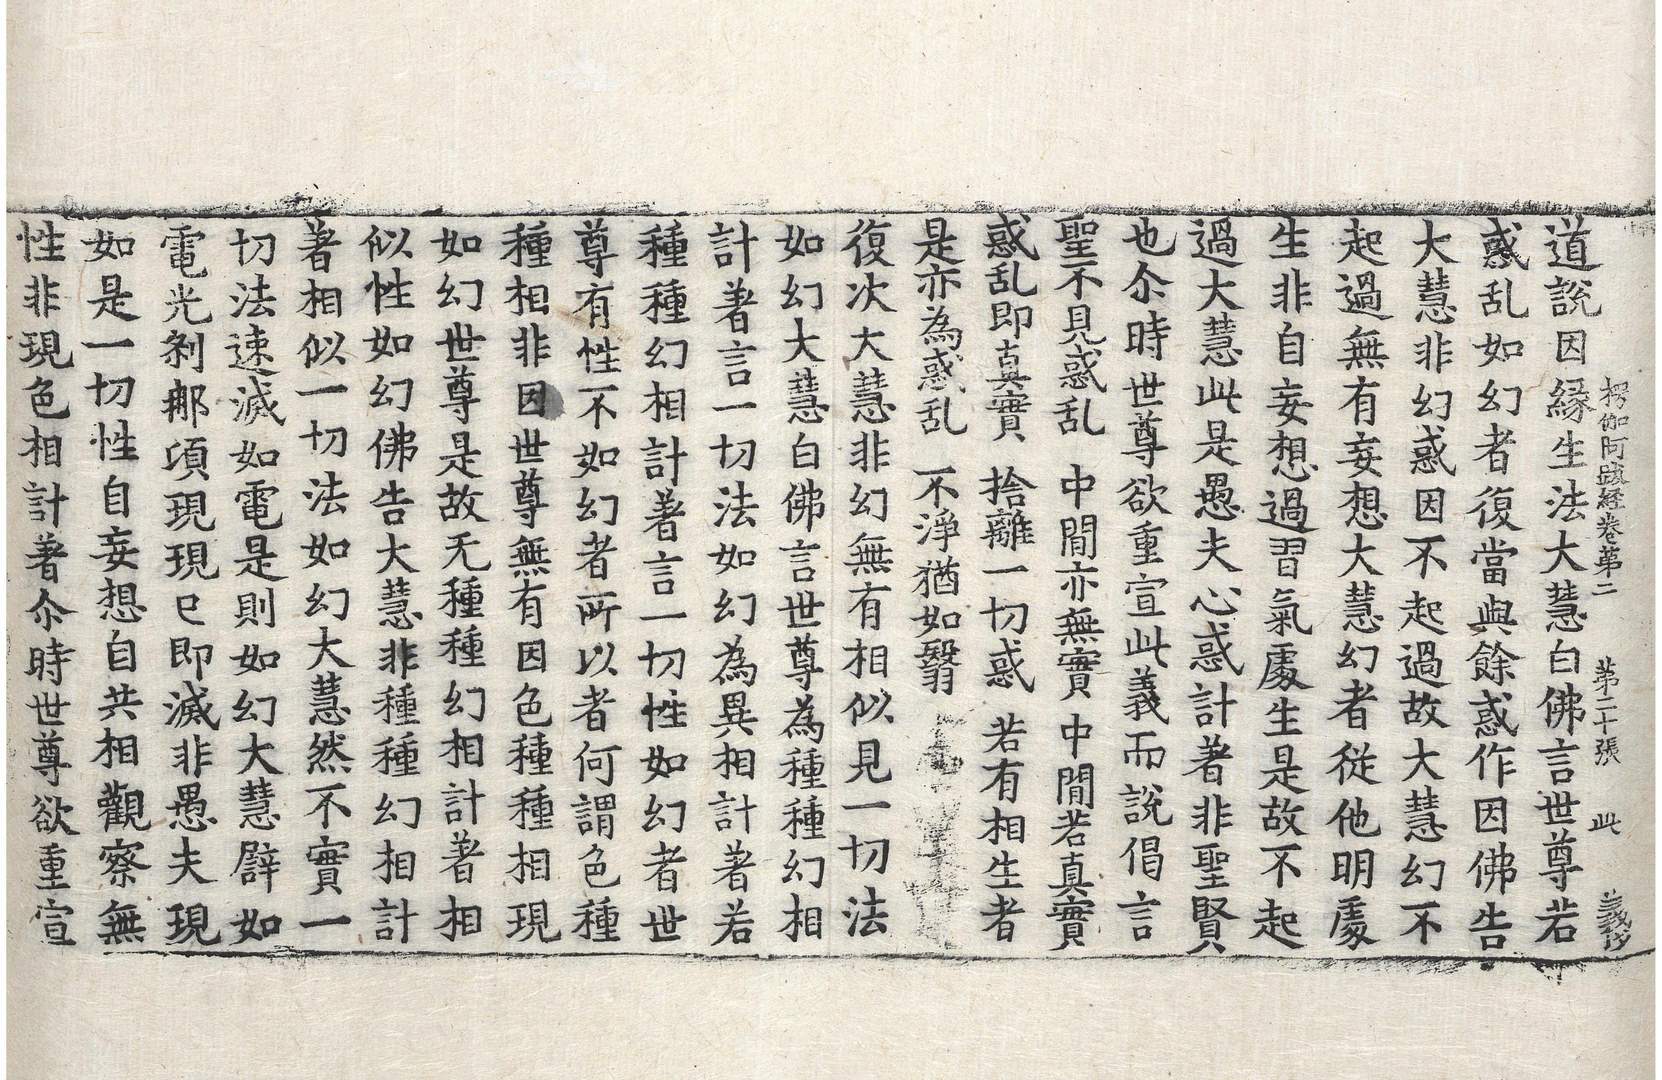 楞伽阿跋経卷第二　第二十張　此
道說因緣生法大慧白佛言世尊若
惑乱如幻者復當與餘惑作因佛告
大慧非幻惑因不起過故大慧幻不
起過無有妄想大慧幻者從他明處
生非自妄想過習氣處生是故不起
過大慧此是愚夫心惑計著非聖賢
也尒時世尊欲重宣此義而說偈言
聖不見惑乱　中間亦無實　中間若真實
惑乱即真實　捨離一切惑　若有相生者
是亦為惑乱　不淨猶如翳
復次大慧非幻無有相似見一切法
如幻大慧白佛言世尊為種種幻相
計著言一切法如幻為異相計著若
種種幻相計著言一切性如幻者世
尊有性不如幻者所以者何謂色種
種相非因世尊無有因色種種相現
如幻世尊是故无種種幻相計著相
似性如幻佛告大慧非種種幻相計
著相似一切法如幻大慧然不實一
切法速滅如電是則如幻大慧譬如
電光刹那頃現現已即滅非愚夫現
如是一切性自妄想自共相觀察無
性非現色相計著尒時世尊欲重宣